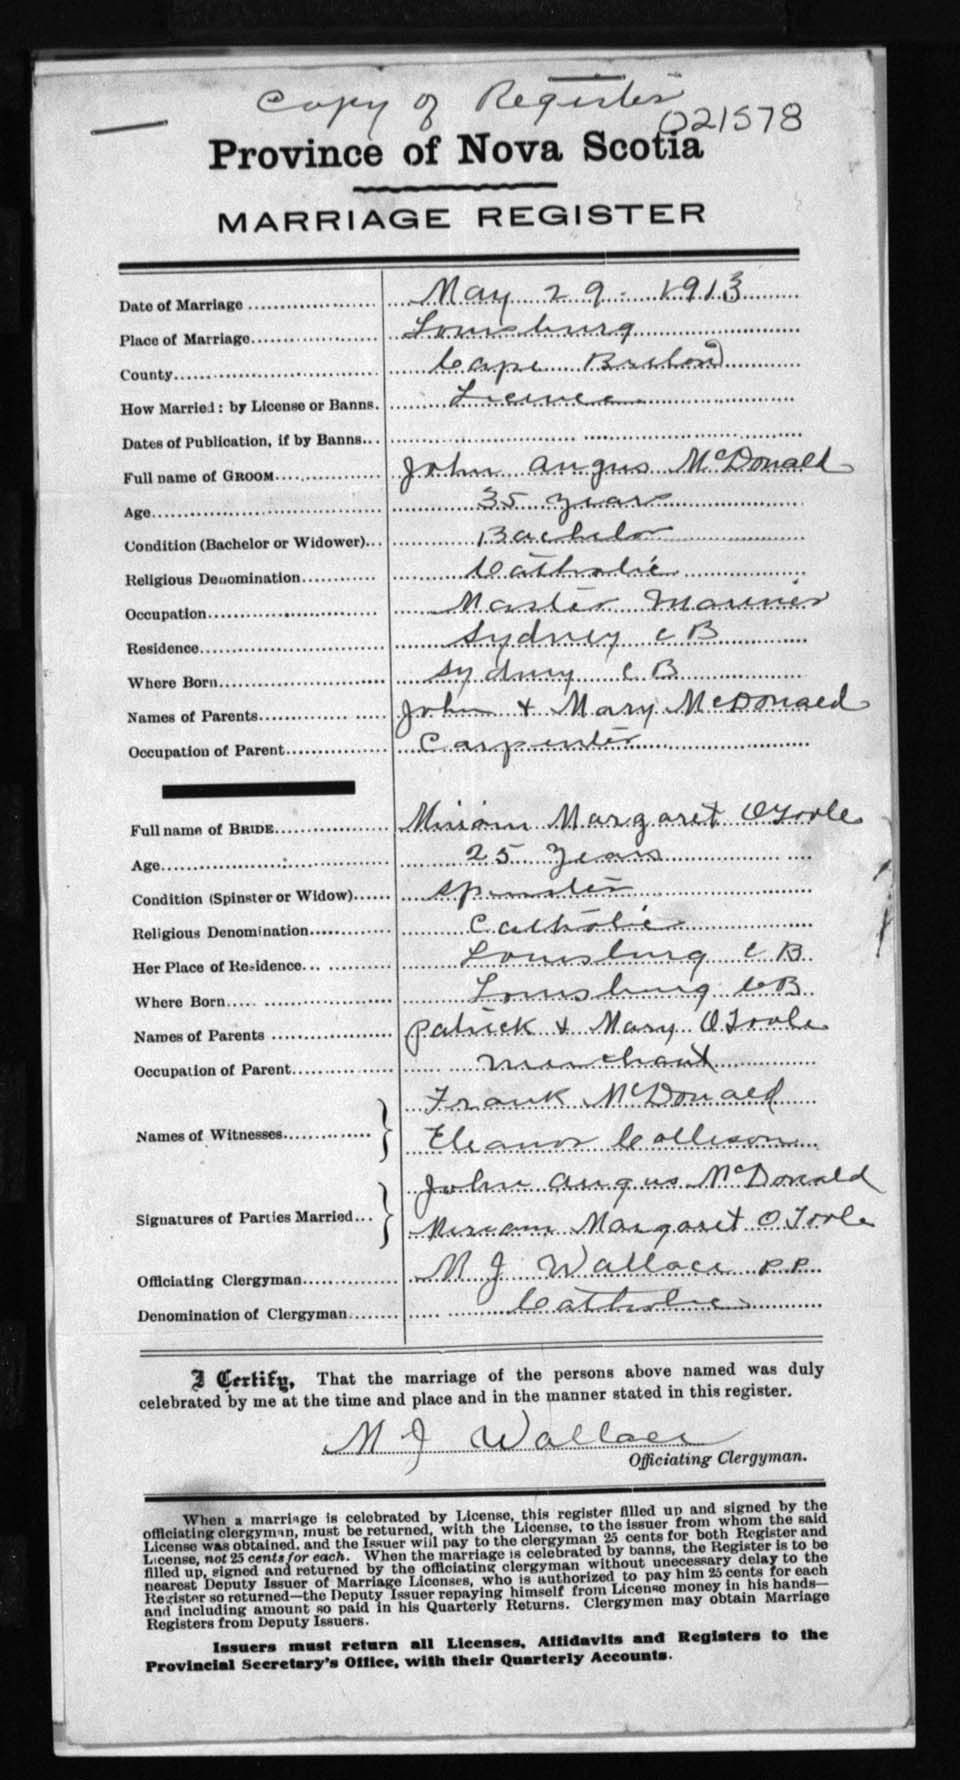 Copy of Register
021578
Province of Nova Scotia
MARRIAGE REGISTER
Date of Marriage May 29. 1913
Place of Marriage Louisburg
County Cape Breton
How Married: by License or Banns. License
Dates of Publication, if by Banns
Full name of GROOM John Angus McDonald
Age 35 years
Condition (Bachelor or Widower) Bachelor
Religious Denomination Catholic
Occupation Master Mariner
Residence Sydney C B
Where Born Sydney C B
Names of Parents John + Mary McDonald
Occupation of Parent Carpenter
Full name of BRIDE Miriam Margaret O'Toole
Age 25 Years
Condition (Spinster or Widow) Spinster
Religious Denomination Catholic
Her Place of Residence Louisburg C B
Where Born Louisburg C B
Names of Parents Patrick + Mary O'Toole
Occupation of Parent Merchant
Names of Witnesses Frank McDonald
Eleanor Collison
Signatures of Parties Married John Angus McDonald
Miriam Margaret O'Toole
Officiating Clergyman M J Wallace P.P.
Denomination of Clergyman Catholic
I Certify, That the marriage of the persons above named was duly
celebrated by me at the time and place and in the manner stated in this register.
M J Wallace
Officiating Clergyman.
When a marriage is celebrated by License, this register filled up and signed by the
officiating clergyman, must be returned, with the License, to the issuer from whom the said
License was obtained, and the Issuer will pay to the clergyman 25 cents for both Register and
License, not 25 cents for each. When the marriage is celebrated by banns, the Register is to be
filled up, signed and returned by the officiating clergyman without unnecessary delay to the
nearest Deputy Issuer of Marriage Licenses, who is authorized to pay him 25 cents for each
Register so returned—the Deputy Issuer repaying himself from License money in his hands—
and including amount so paid in his Quarterly Returns. Clergymen may obtain Marriage
Registers from Deputy Issuers.
Issuers must return all Licenses, Affidavits and Registers to the
Provincial Secretary's Office, with their Quarterly Accounts.